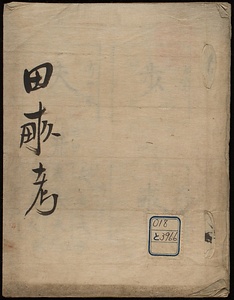 田畝考
018
と3966